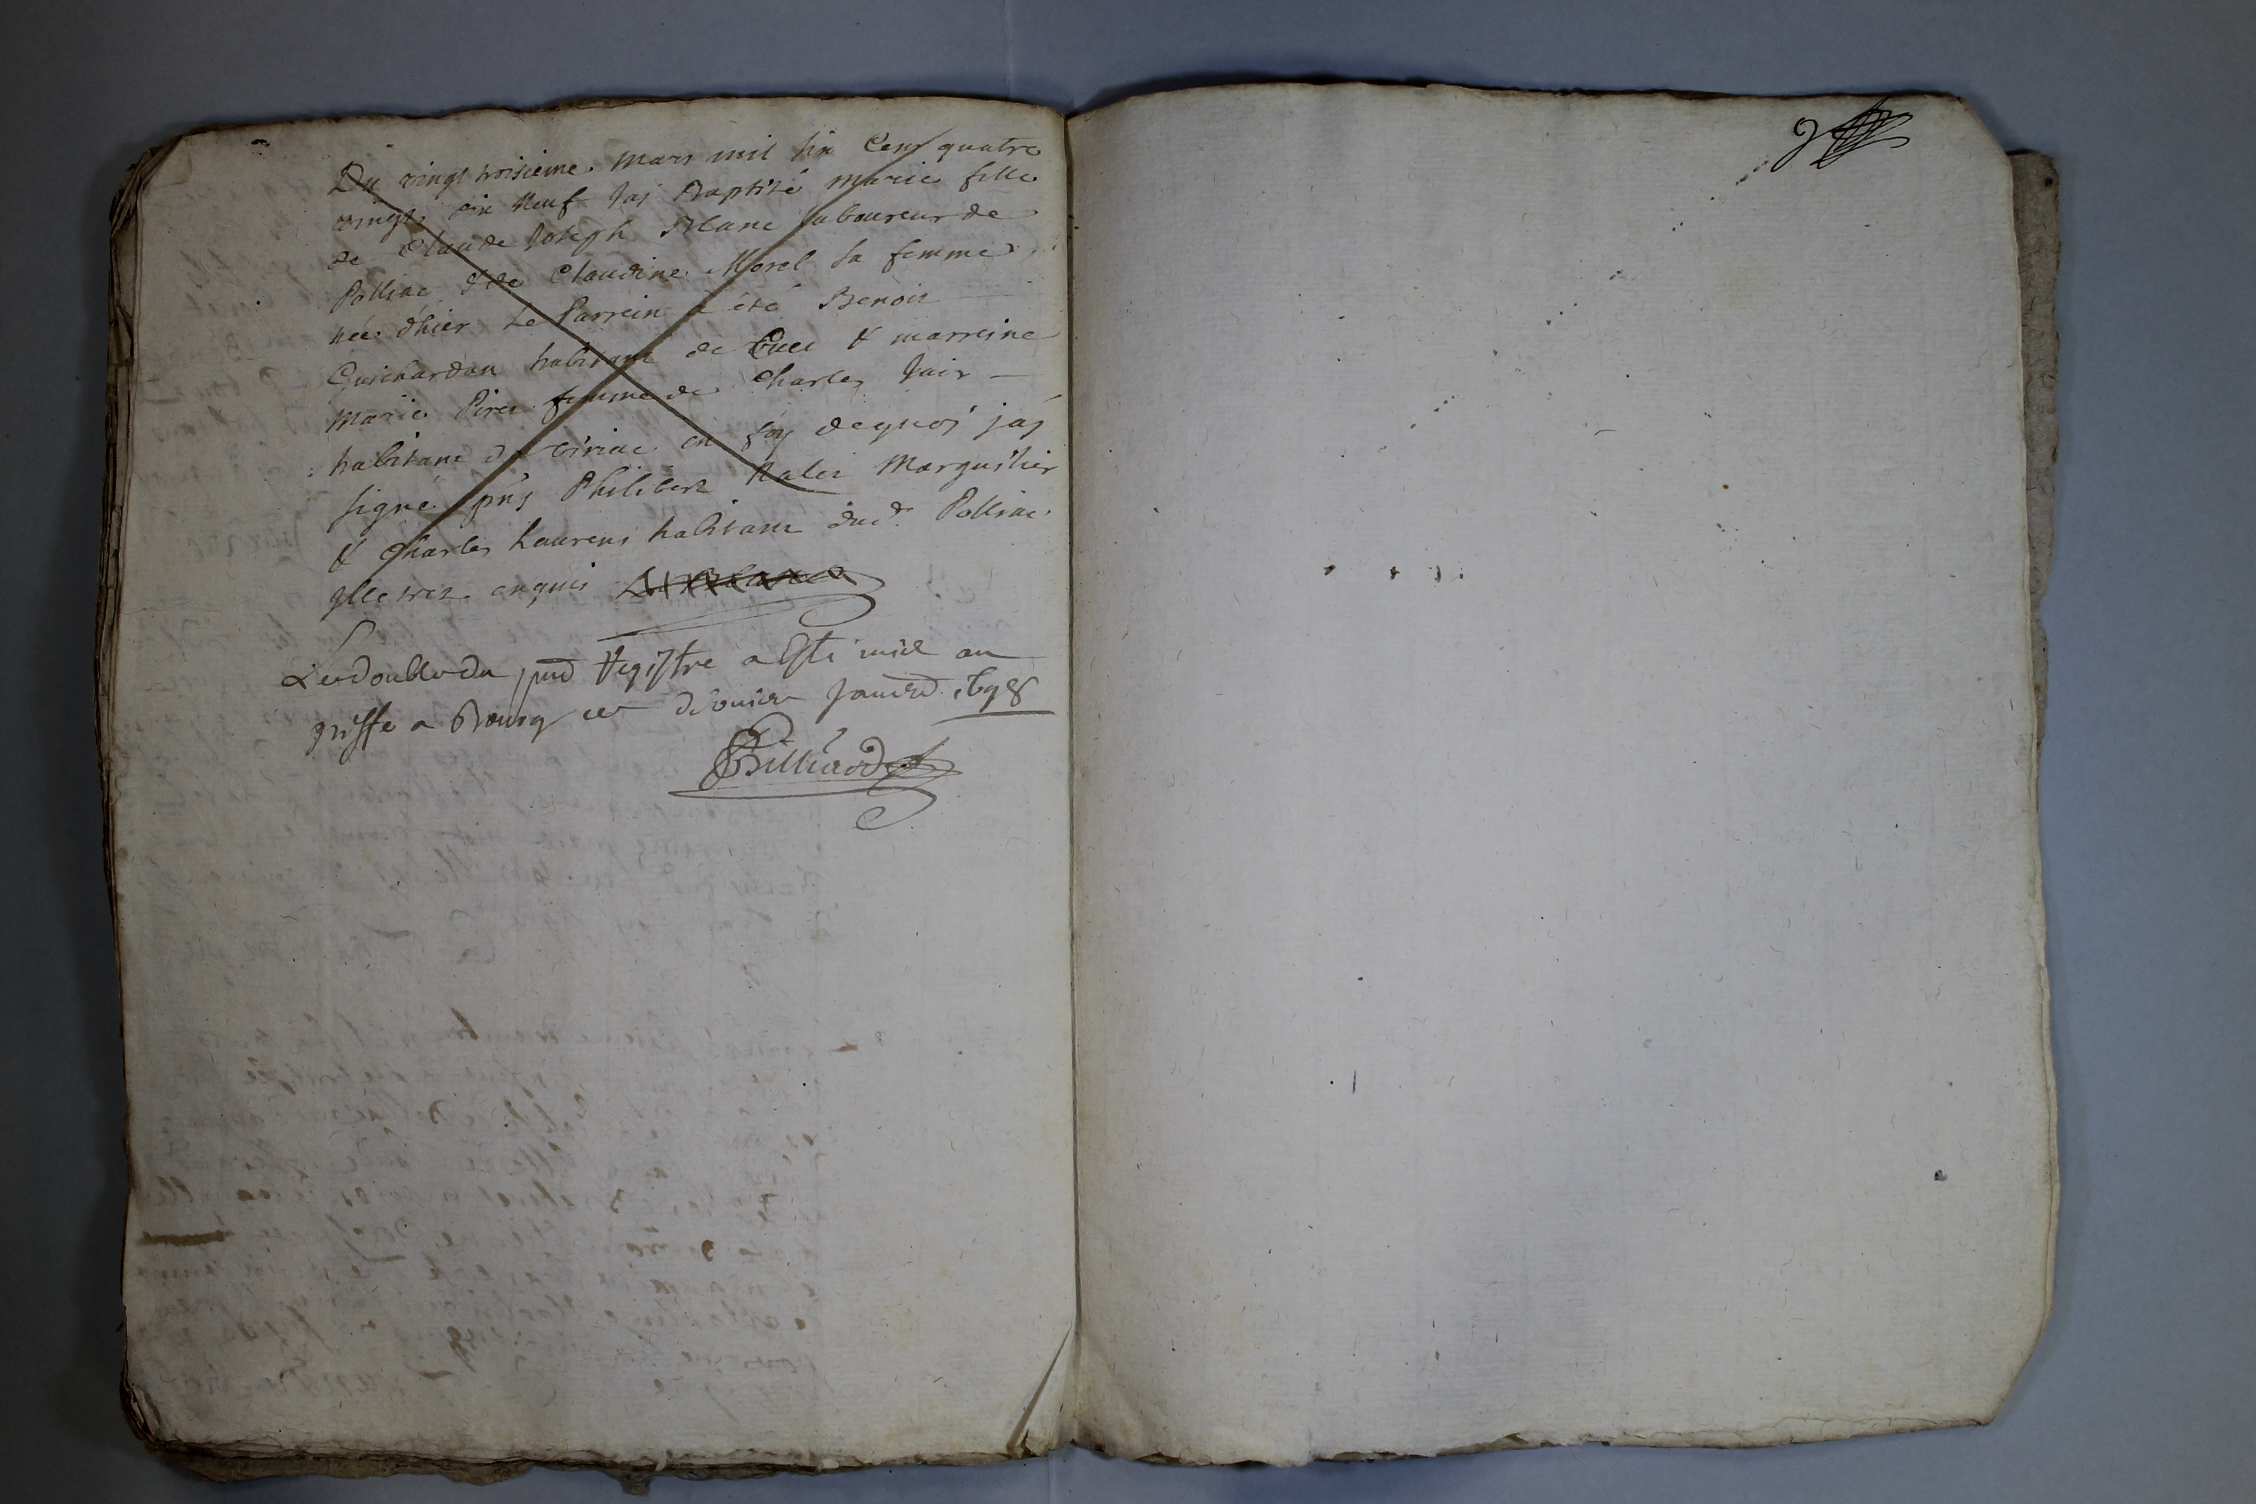 Du vingt troisieme mars mil six Cens quatre
vingt dix Neuf Jaj Baptisé marie fille
de Claude Joseph Blanc laboureur de
Polliac & de Claudine Morel sa femme
née d'hier Le Parrein a été Benoit
Guichardan habitant de & marreine
Marie Piret femme de Charles Jair
habitant de Viriac en foy dequoj jaj
signé pñs Philibert Marguillier
& Charles Laurent habitant dud. Polliac
enquis
Le double du pnt Registre a Esté mis au
greffe a Bourg ce dernier Janvier 1698
Billiard